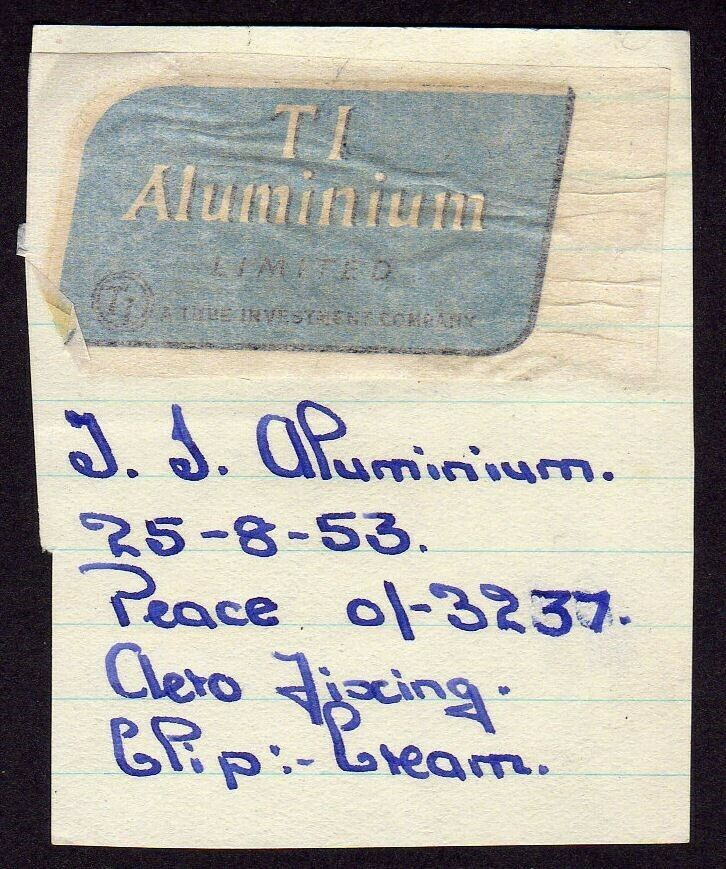 TI
Aluminium
LIMITED
TI A TUBE INVESTMENT COMPANY
T. I. Aluminium.
25-8-53.
Peace o/-3237.
Aero Fixing.
Clip:- Cream.